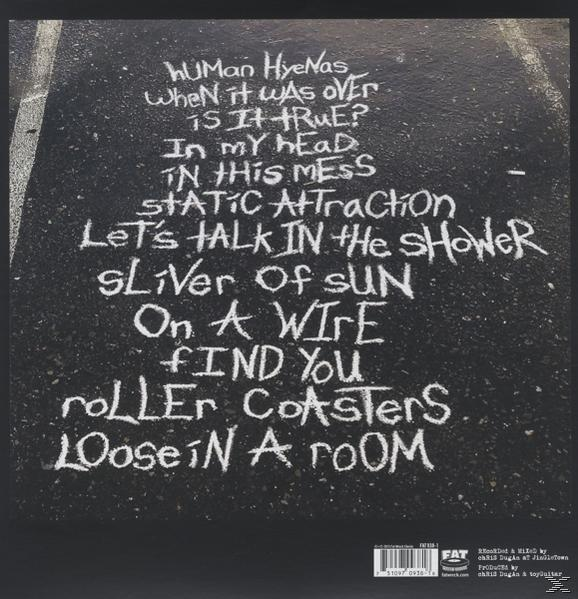 hUMan HyeNas
wheN it wAs oVEr
is It tRuE?
In mY hEaD
iN tHis mEsS
stATiC AtTractiOn
LeT's tALK IN the sHOWeR
sLiVer Of sUN
On A WIrE
fIND YoU
roLLEr CoAsTerS
LOose iN A roOM
FAT 938-1
7 51097 0938-1 6
FAT
fatwreck.com
REcoRDed & MiXeD by
chRiS DugAn aT JinGleTown
PrODuCeD by
chRiS DugAn & toyGuitar